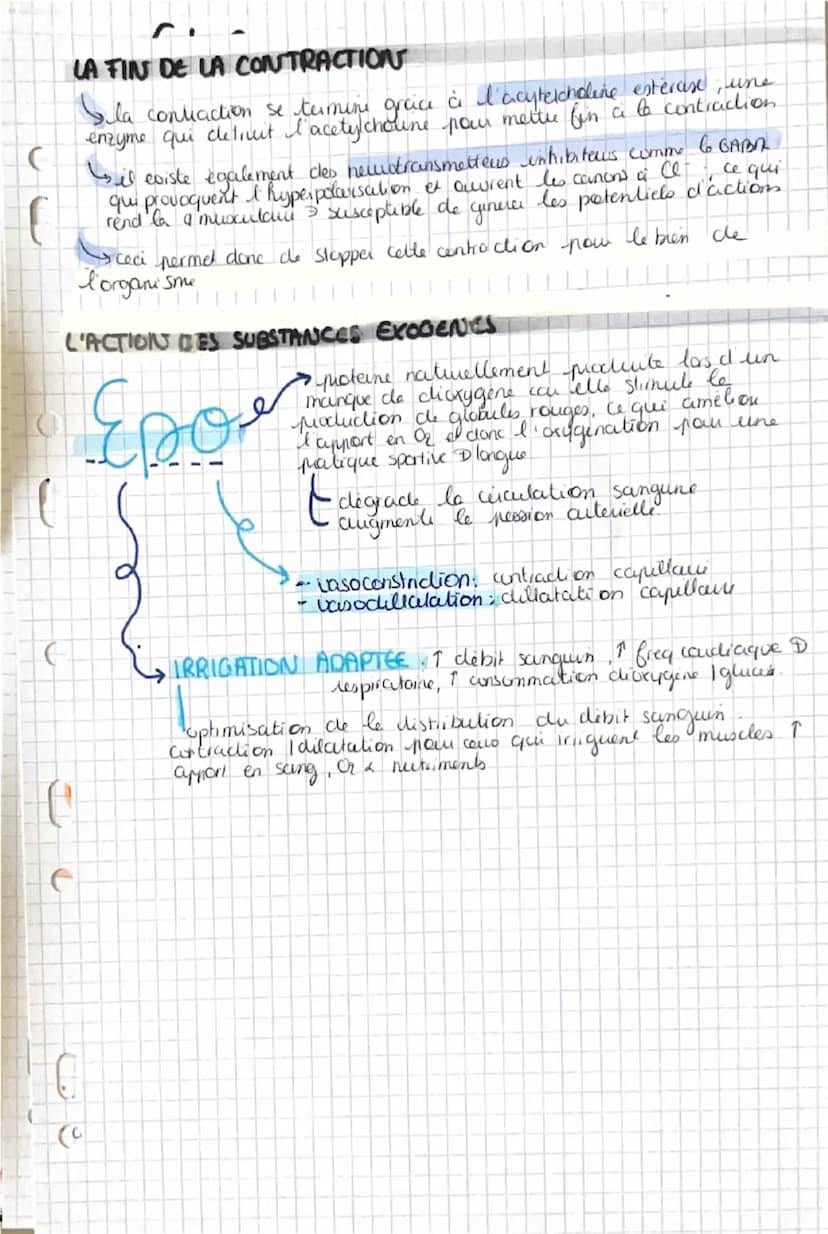 LA FIN DE LA CONTRACTION
la contraction se termine grâce à l'acytelcholine estérase, une
enzyme qui détruit l'acetylcholine pour mettre fin à la contraction
il existe également des neurotransmetteurs inhibiteurs comme le GABA
qui provoquent l'hyperpolarisation et ouvrent les canaux à Cl⁻, ce qui
rend la musculaire susceptible de générer les potentiels d'actions
ceci permet donc de stopper cette contraction pour le bien de
l'organisme
L'ACTION DES SUBSTANCES EXOGENES
Epo
proteine naturellement produite lors d'un
manque de dioxygène car elle stimule la
production de globules rouges, ce qui améliore
l'apport en O2 et donc l'oxygénation pour une
pratique sportive longue
dégrade la circulation sanguine
augmente la pression artérielle
- vasoconstriction: contraction capillaire
- vasodillatation: dillatation capillaire
IRRIGATION ADAPTEE: ↑ débit sanguin, ↑ freq cardiaque
respiratoire, ↑ consommation dioxygène / glucas.
optimisation de la distribution du débit sanguin.
contraction / dilatation pour ceux qui irriguent les muscles ↑
apport en sang, O2 & nutriments